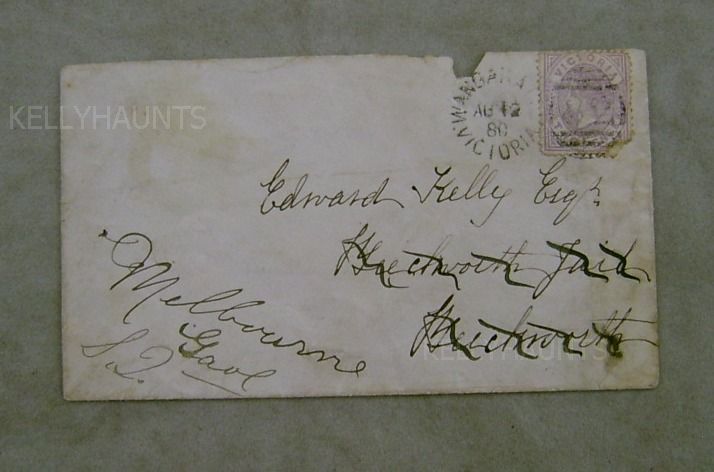 KELLYHAUNTS
WANGARATTA
AU 12
80
VICTORIA
VICTORIA
Edward Kelly Esqr.
Beechworth Jail
Beechworth
KELLYHAUNTS
Melbourne
Gaol